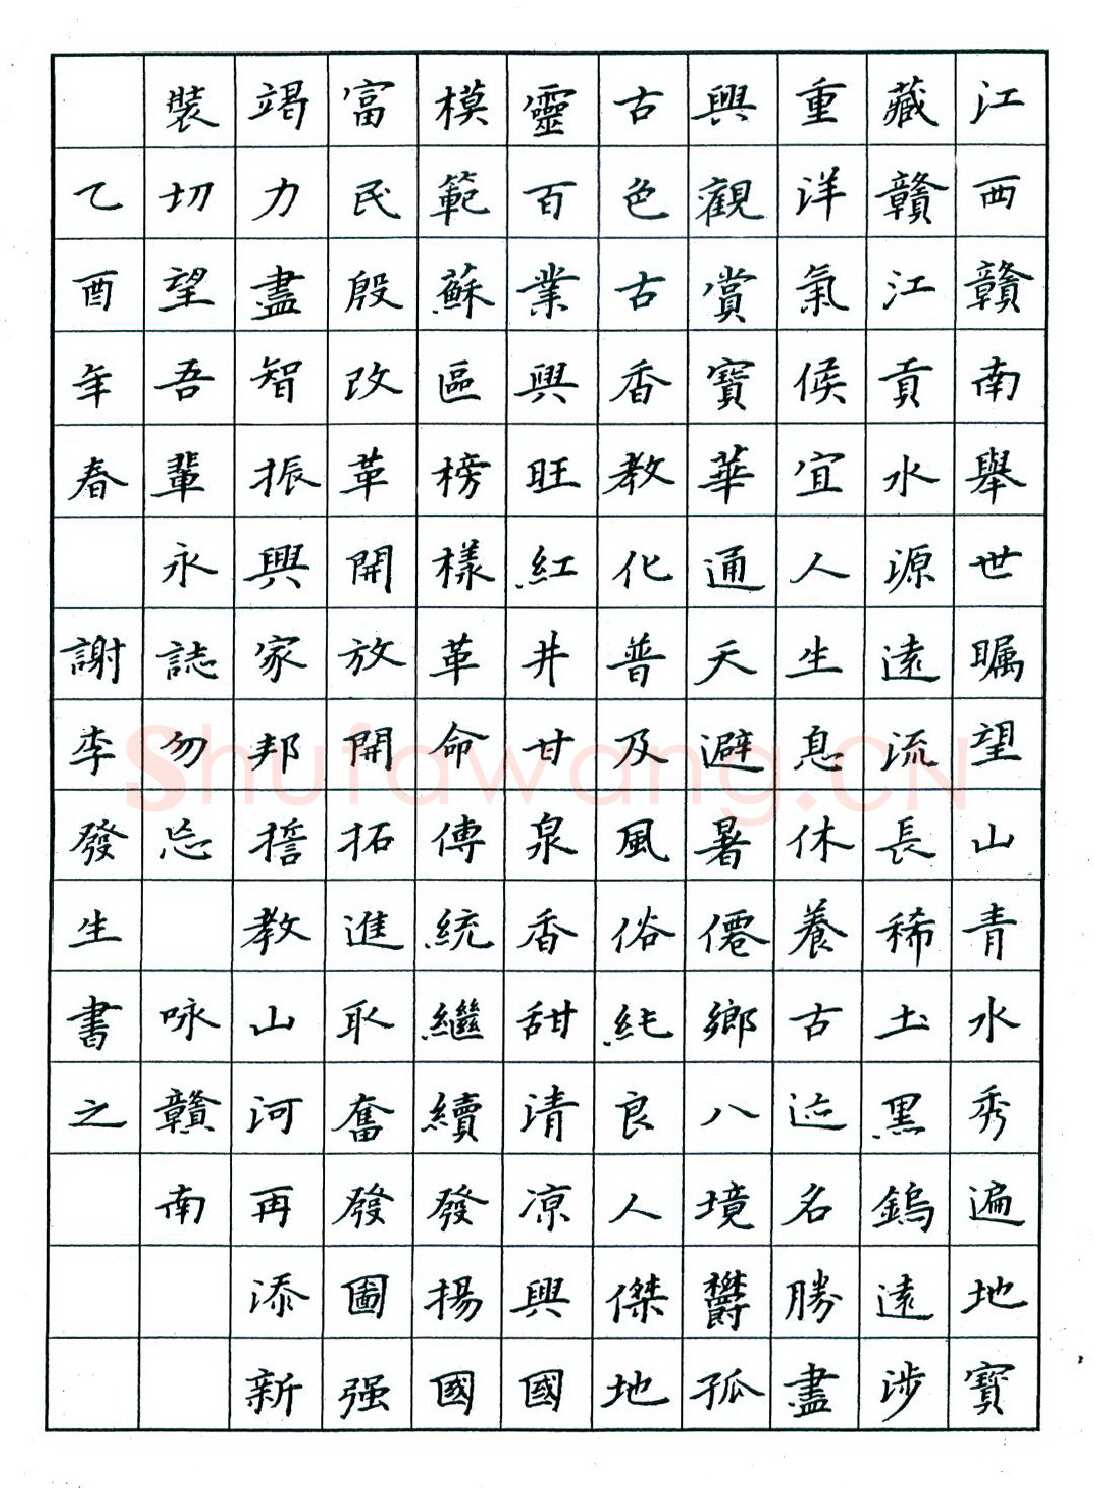 江西贛南舉世矚望山青水秀遍地寶
藏贛江貢水源遠流長稀土黑鎢遠涉
重洋氣候宜人生息休養古迹名勝盡
興觀賞寶華通天避暑僊鄉八境欝孤
古色古香教化普及風俗純良人傑地
靈百業興旺紅井甘泉香甜清凉興國
模範蘇區榜樣革命傳統繼續發揚國
富民殷改革開放開拓進取奮發圖强
竭力盡智振興家邦誓教山河再添新
裝切望吾輩永誌勿忘 咏贛南
乙酉年春 謝李發生書之
Shufawang.CN